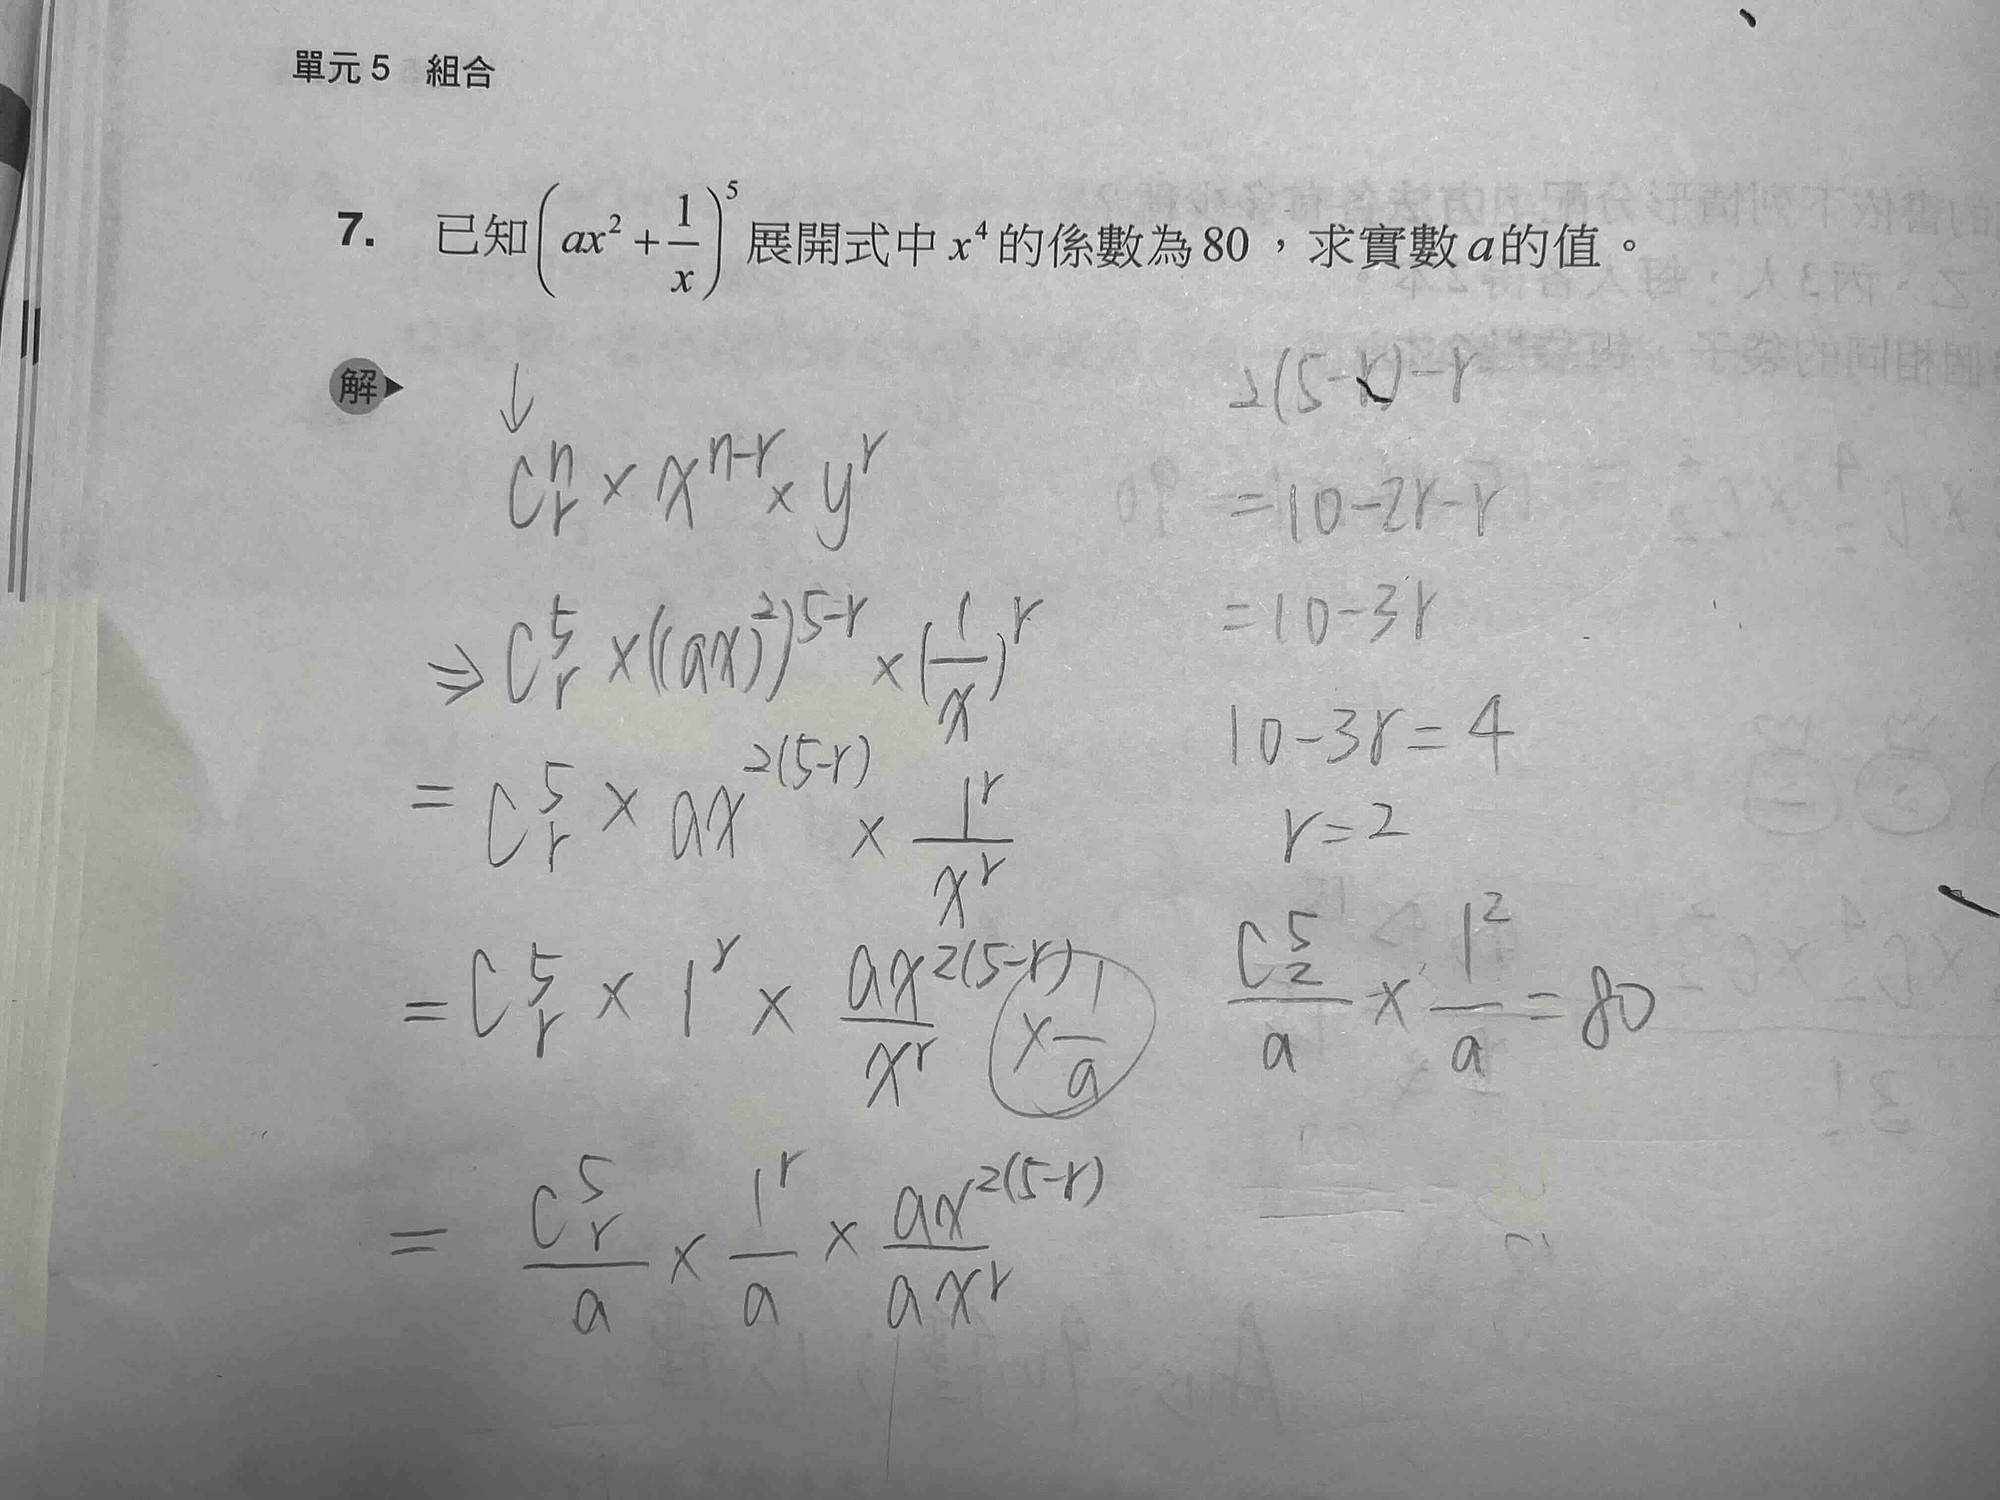 單元 5 組合
7. 已知(ax² + 1/x)⁵ 展開式中 x⁴ 的係數為 80，求實數 a 的值。
解
↓
C^n_r × x^(n-r) × y^r
⇒ C^5_r × ((ax)²)^(5-r) × (1/x)^r
= C^5_r × ax^(2(5-r)) × 1^r/x^r
= C^5_r × 1^r × ax^(2(5-r))/x^r × 1/a
= C^5_r/a × 1^r/a × ax^(2(5-r))/ax^r
2(5-r)-r
=10-2r-r
=10-3r
10-3r=4
r=2
C^5_2/a × 1²/a = 80